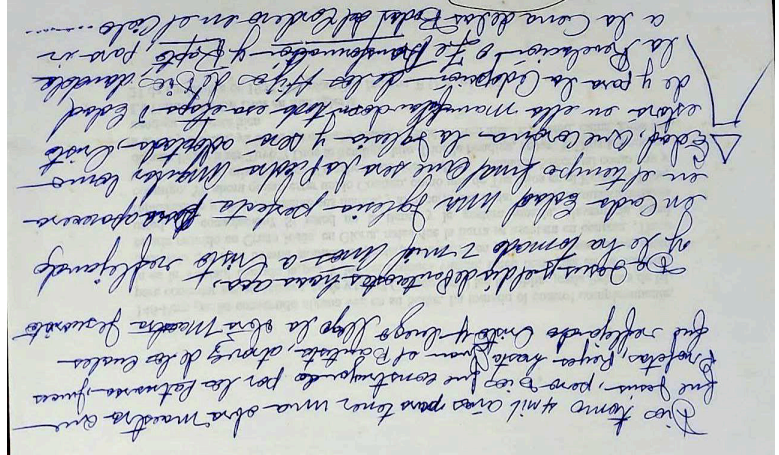 Dios tomó 4 mil años para tener una obra maestra que
fue Jesus, pero Dios fue construyendo por los Patriarcas, Jueces
Profeta, Reyes hasta Juan el Bautista, atravez de los cuales
fue reflejando Cristo y luego llego la obra Maestra Jesucristo
De Jesus y el dia de Pentecostes hasta aca,
y le ha tomado 2 mil años a Cristo reflejando
en Cada Edad una Iglesia perfecta para aparecer
en el tiempo final que sera la piedra Angular como
Edad, que corona la Iglesia y sera adoptada, Cristo
estara en ella manifestado en toda esa etapa o Edad
de y para la Adopcion de los Hijos de Dios dandole
la Revelacion o Fe de Transformacion y Rapto, para ir
a la Cena de las Bodas del Cordero en el Cielo......